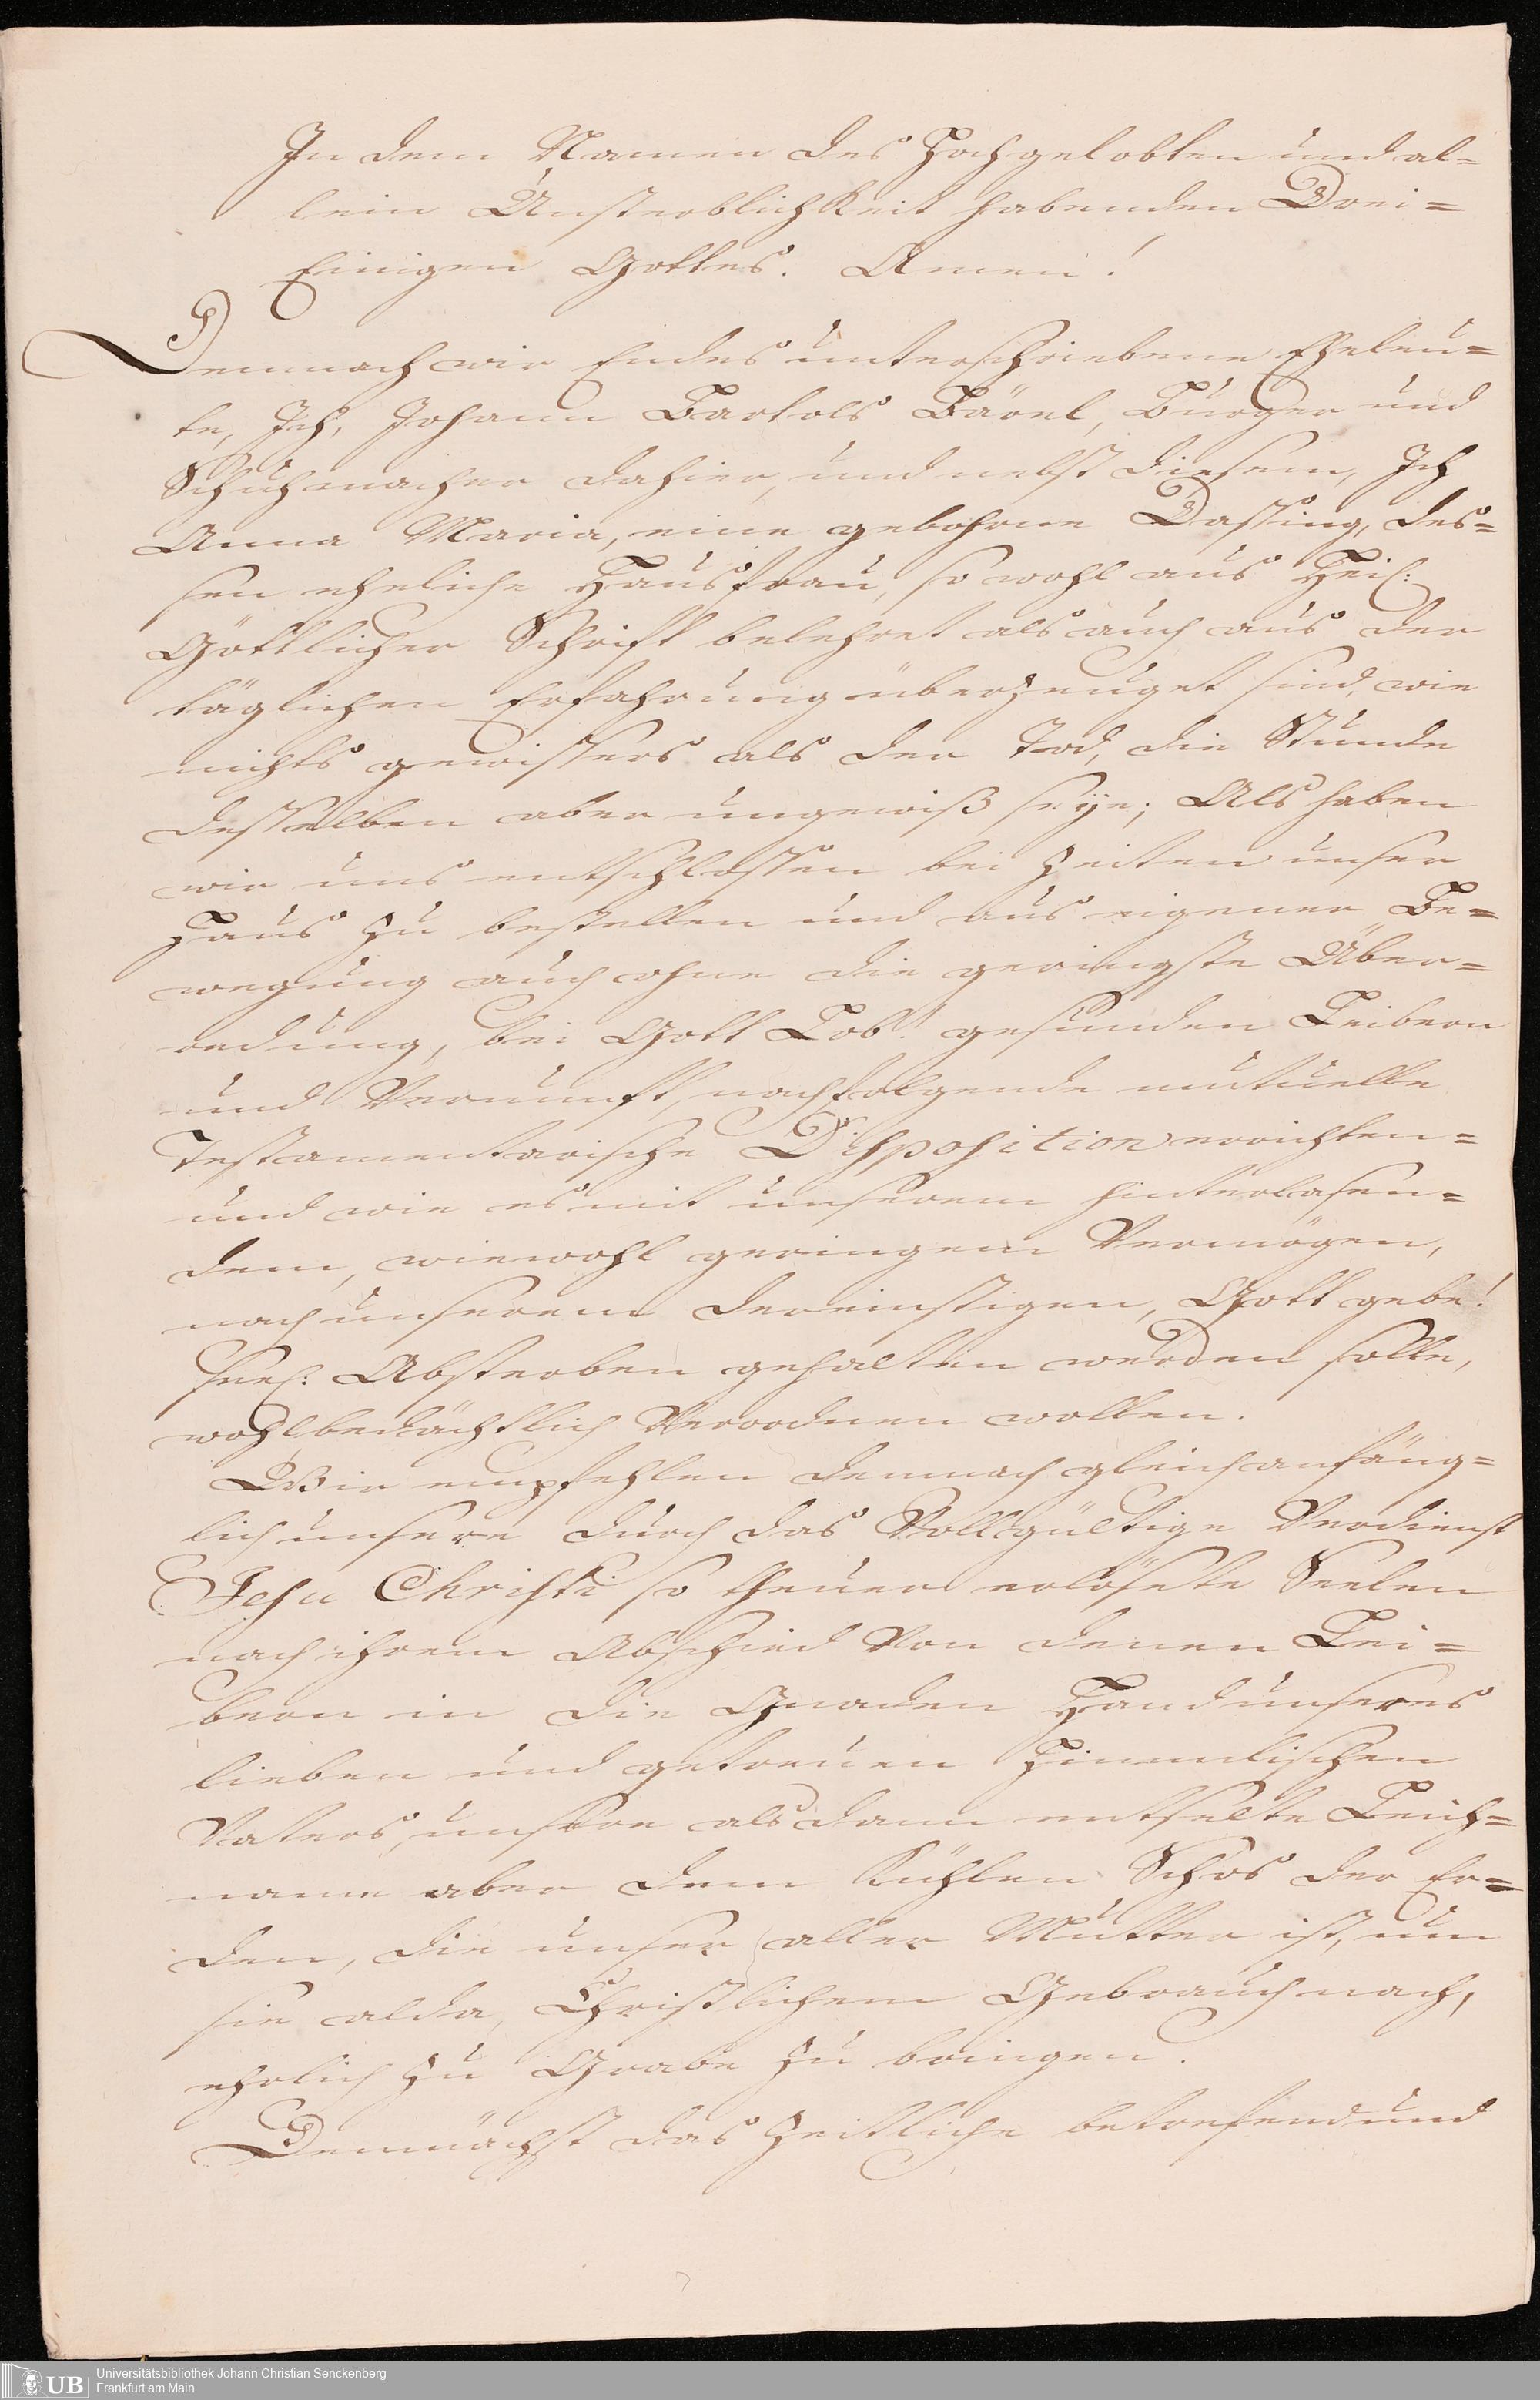 In dem Namen des Hochgelobten und al=
lein Unsterblichkeit habenden Drei=
Einigen Gottes. Amen!
Demnach wir Endes unterschriebene Eheleu=
te, Ich, Johann Bartols Bärel, Burger und
Schuhmacher dahier, und nebst diesem, Ich
Anna Maria, eine gebohrne Dassing, des=
sen eheliche Hausfrau, so wohl aus Heil:
Göttlicher Schrift belehret als auch aus der
täglichen Erfahrung überzeuget sind, wie
nichts gewissers als der Tod, die Stunde
desselben aber ungewiß seye; Als haben
wir uns entschlossen bei Zeiten unser
Haus zu bestellen und aus eigener Be=
wegung auch ohne die geringste Über=
redung, bei Gott Lob! gesunden Leibern
und Vernunft, nachfolgende mutuelle
Testamentarische Disposition errichten=
und wie es mit unserem hinterlasen=
dem, wiewohl geringem Vermögen,
nach unserem dereinstigen, Gott gebe!
seel: Absterben gehalten werden solle,
wohlbedächtlich Verordnen wollen.
Wir empfehlen demnach gleich anfäng=
lich unsere durch das Vollgültige Verdienst
Jesu Christi so theuer erlösete Seelen
nach ihrem Abschied Von denen Lei=
bern in die Gnaden Hand unseres
lieben und getreuen Himmlischen
Vaters, unsere alsdann entselte Leich=
name aber dem Kühlen Schos der Er=
den, die unser aller Mutter ist, um
sie alda, Christlichem Gebrauch nach,
ehrlich zu Grabe zu bringen.
Demnächst das Zeitliche betrefend und
UB Universitätsbibliothek Johann Christian Senckenberg
Frankfurt am Main